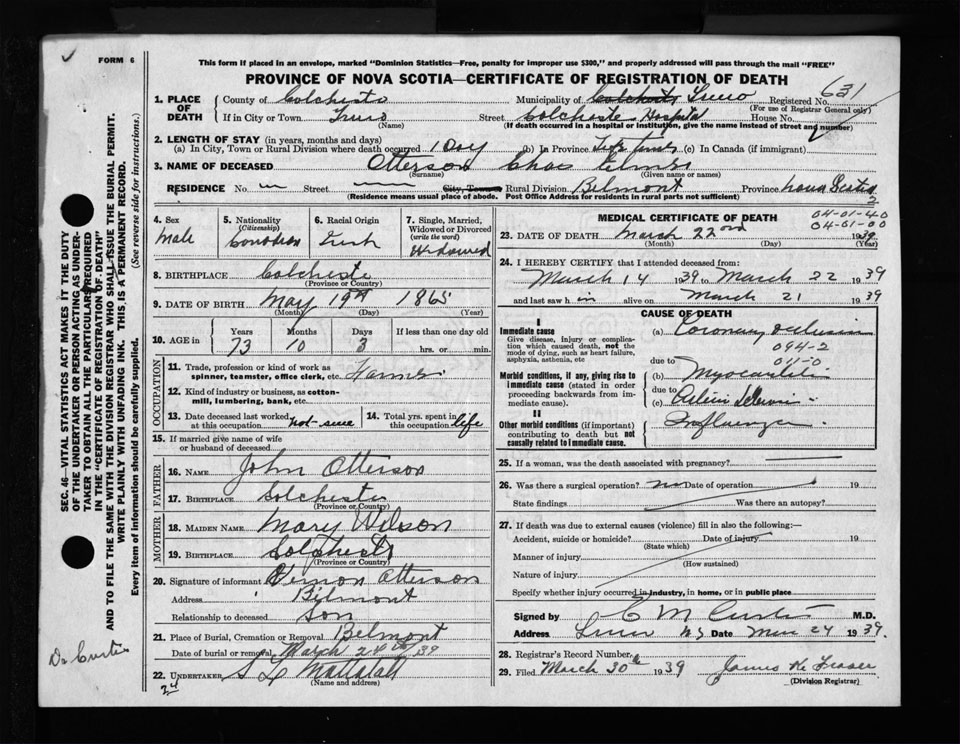 FORM 6
This form if placed in an envelope, marked "Dominion Statistics—Free, penalty for improper use $300," and properly addressed will pass through the mail "FREE"
PROVINCE OF NOVA SCOTIA—CERTIFICATE OF REGISTRATION OF DEATH
1. PLACE OF DEATH
County of Colchester Municipality of Colchester Truro Registered No. 631
(For use of Registrar General only)
If in City or Town Truro Street Colchester Hospital House No.
(Name) (If death occurred in a hospital or institution, give the name instead of street and number)
2. LENGTH OF STAY (in years, months and days)
(a) In City, Town or Rural Division where death occurred 1 Day (b) In Province Life time (c) In Canada (if immigrant)
3. NAME OF DECEASED Otterson Chas Elmer
(Surname) (Given name or names)
RESIDENCE No. Street City, Town Rural Division Belmont Province Nova Scotia
(Residence means usual place of abode. Post Office Address for residents in rural parts not sufficient) 2
4. Sex Male
5. Nationality (Citizenship) Canadian
6. Racial Origin Irish
7. Single, Married, Widowed or Divorced (write the word) Widowed
8. BIRTHPLACE Colchester
(Province or County)
9. DATE OF BIRTH May 19th 1865
(Month) (Day) (Year)
10. AGE in Years 73 Months 10 Days 3 If less than one day old hrs. or min.
OCCUPATION
11. Trade, profession or kind of work as spinner, teamster, office clerk, etc. Farmer
12. Kind of industry or business, as cotton-mill, lumbering, bank, etc.
13. Date deceased last worked at this occupation
14. Total yrs. spent in this occupation life
15. If married give name of wife or husband of deceased
FATHER
16. NAME John Otterson
17. BIRTHPLACE Colchester
(Province or County)
MOTHER
18. MAIDEN NAME Mary Wilson
19. BIRTHPLACE Colchester
(Province or County)
20. Signature of informant Vernon Otterson
Address Belmont
Relationship to deceased Son
21. Place of Burial, Cremation or Removal Belmont
Date of burial or removal March 24th/39
22. UNDERTAKER S L Mattatall
(Name and address)
24
MEDICAL CERTIFICATE OF DEATH
04-01-40
04-01-00
23. DATE OF DEATH March 22nd 1939
(Month) (Day) (Year)
24. I HEREBY CERTIFY that I attended deceased from:
March 14 1939 to March 22 1939
and last saw him alive on March 21 1939
CAUSE OF DEATH
I
Immediate cause (a) Coronary occlusion
Give disease, injury or complication which caused death, not the mode of dying, such as heart failure, asphyxia, asthenia, etc
094-2
011-0
due to
Morbid conditions, if any, giving rise to immediate cause (stated in order proceeding backwards from immediate cause).
(b) Myocarditis
due to
(c) Arterio Sclerosis
II
Other morbid conditions (if important) contributing to death but not causally related to immediate cause.
Influenza
25. If a woman, was the death associated with pregnancy?
26. Was there a surgical operation? no Date of operation 19
State findings Was there an autopsy?
27. If death was due to external causes (violence) fill in also the following:—
Accident, suicide or homicide? Date of injury 19
(State which)
Manner of injury
(How sustained)
Nature of injury
Specify whether injury occurred in industry, in home, or in public place
Signed by C M Curtis M.D.
Address Truro N.S Date Mar 24 1939.
28. Registrar's Record Number
29. Filed March 30th 1939 James W Fraser
(Division Registrar)
SEC. 46—VITAL STATISTICS ACT MAKES IT THE DUTY
OF THE UNDERTAKER OR PERSON ACTING AS UNDER-
TAKER TO OBTAIN ALL THE PARTICULARS REQUIRED
IN THE "CERTIFICATE OF REGISTRATION OF DEATH"
AND TO FILE THE SAME WITH THE DIVISION REGISTRAR WHO SHALL ISSUE THE BURIAL PERMIT.
WRITE PLAINLY WITH UNFADING INK. THIS IS A PERMANENT RECORD.
Every item of information should be carefully supplied. (See reverse side for instructions.)
Dr Curtis